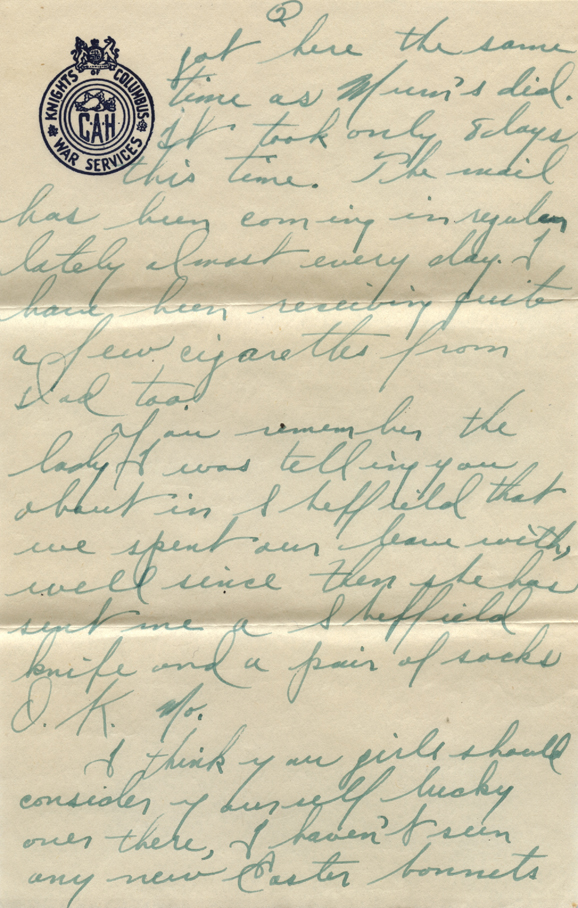 2
KNIGHTS OF COLUMBUS
CAH
WAR SERVICES
got here the same
time as Mum's did.
It took only 8 days
this time. The mail
has been coming in regular
lately almost every day. I
have been receiving quite
a few cigarettes from
Dad too.
You remember the
lady I was telling you
about in Sheffield that
we spent our leave with,
well since then she has
sent me a Sheffield
knife and a pair of socks
O. K. No.
I think you girls should
consider yourself lucky
over there, I haven't seen
any new Easter bonnets